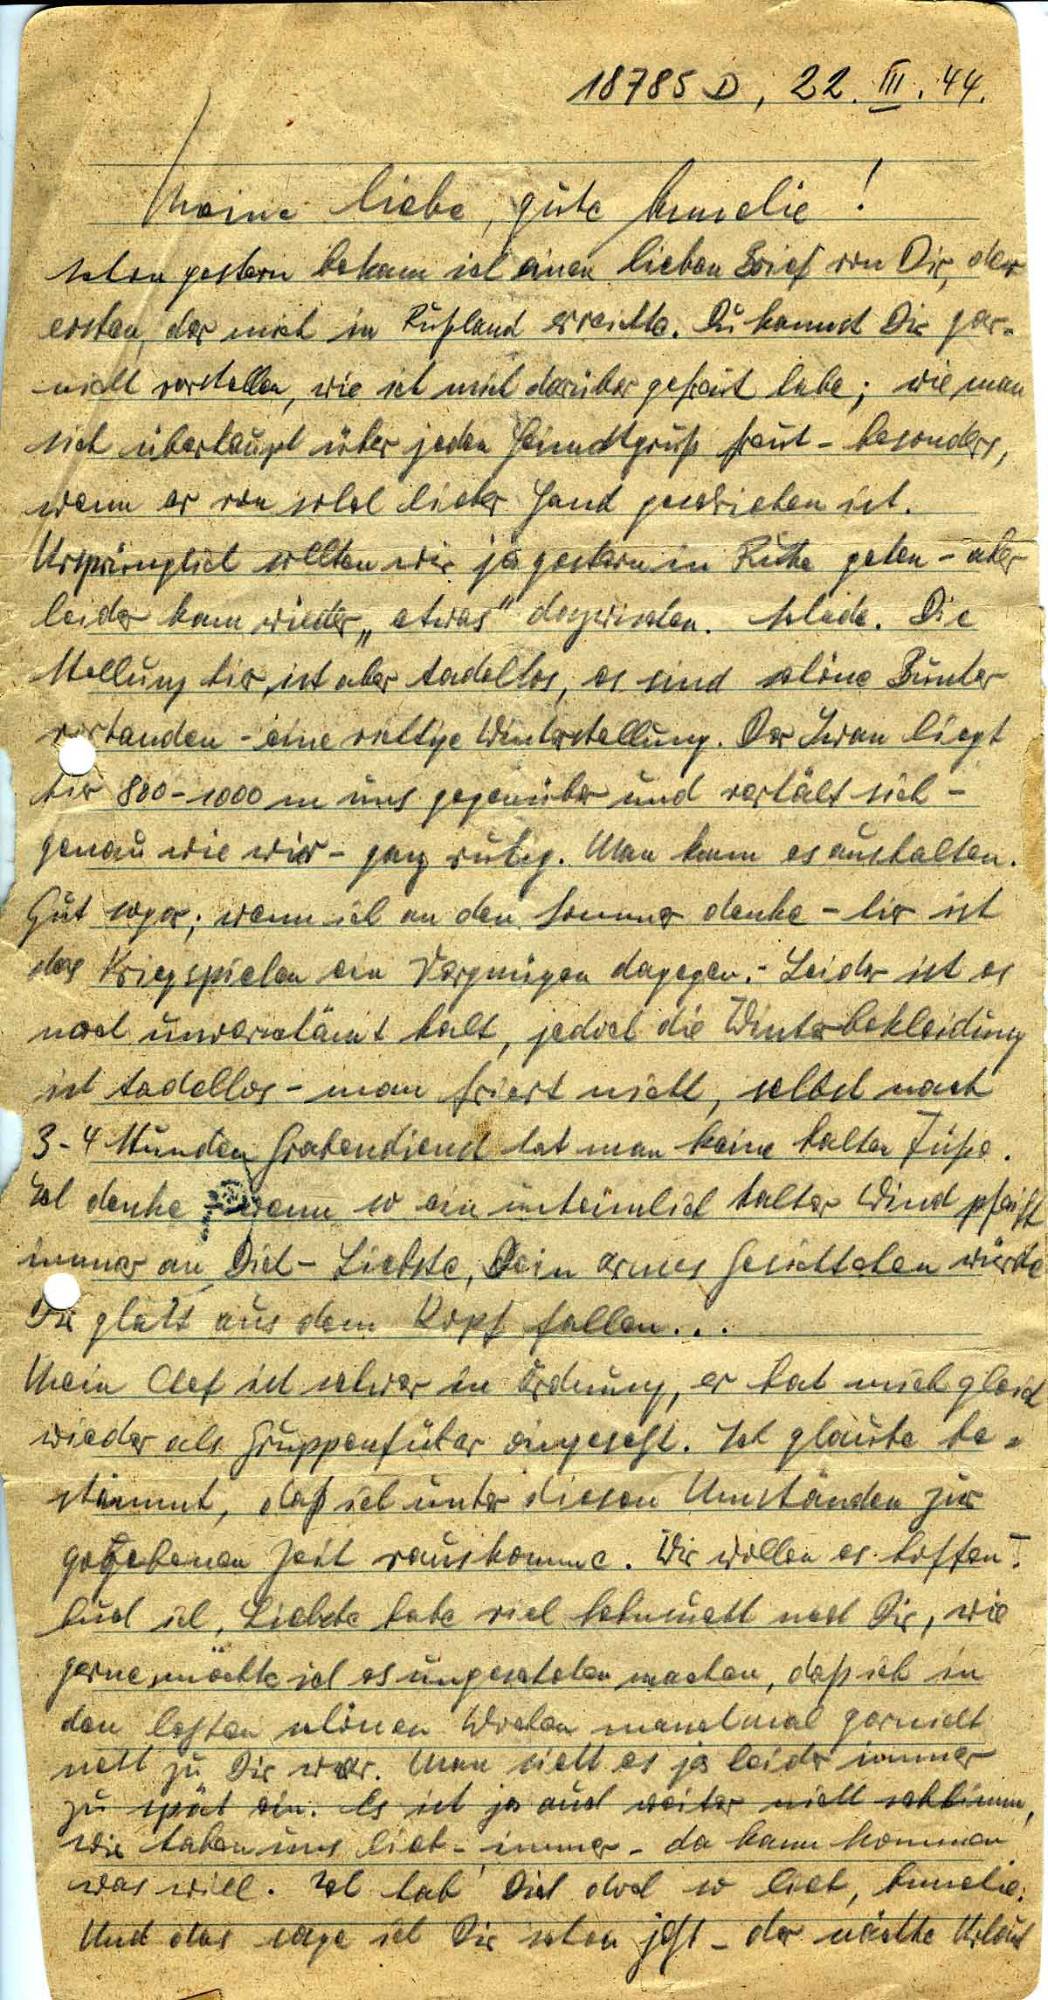 18785 D, 22. III. 44.
Meine liebe, gute Annelie!
Schon gestern bekam ich einen lieben Brief von Dir, der
ersten, der mich in Rußland erreichte. Du kannst Dir gar-
nicht vorstellen, wie ich mich darüber gefreut habe; wie man
sich überhaupt über jeden Heimatgruß freut - besonders,
wenn er von solch lieber Hand geschrieben ist.
Ursprünglich sollten wir ja gestern in Ruhe gehen - aber
leider kam wieder „etwas" dazwischen. Schade. Die
Stellung hier ist aber tadellos, es sind schöne Bunker
vorhanden - eine richtige Winterstellung. Der Iwan liegt
hier 800-1000 m uns gegenüber und verhält sich -
genau wie wir - ganz ruhig. Man kann es aushalten.
Gut sogar; wenn ich an den Sommer denke - hier ist
das Kriegspielen ein Vergnügen dagegen. - Leider ist es
noch unverschämt kalt, jedoch die Winterbekleidung
ist tadellos - man friert nicht, selbst nach
3-4 Stunden Grabendienst hat man keine kalten Füße.
Ich denke wenn so ein unheimlich kalter Wind pfeift
immer an Dich - Liebste, Dein armes Gesichtchen würde
Dir glatt aus dem Kopf fallen...
Mein Chef ist schwer in Ordnung, er hat mich gleich
wieder als Gruppenführer eingesetzt. Ich glaube be-
stimmt, daß ich unter diesen Umständen zur
gegebenen Zeit rauskomme. Wir wollen es hoffen!
Auch ich, Liebste habe viel Sehnsucht nach Dir, wie
gerne möchte ich es ungeschehen machen, daß ich in
den letzten schönen Wochen manchmal garnicht
nett zu Dir war. Man sieht es ja leider immer
zu spät ein. Es ist ja auch weiter nicht schlimm,
wir haben uns lieb - immer - da kann kommen
was will. Ich hab' Dich doch so lieb, Annelie.
Und das sage ich Dir schon jetzt - der nächste Urlaub